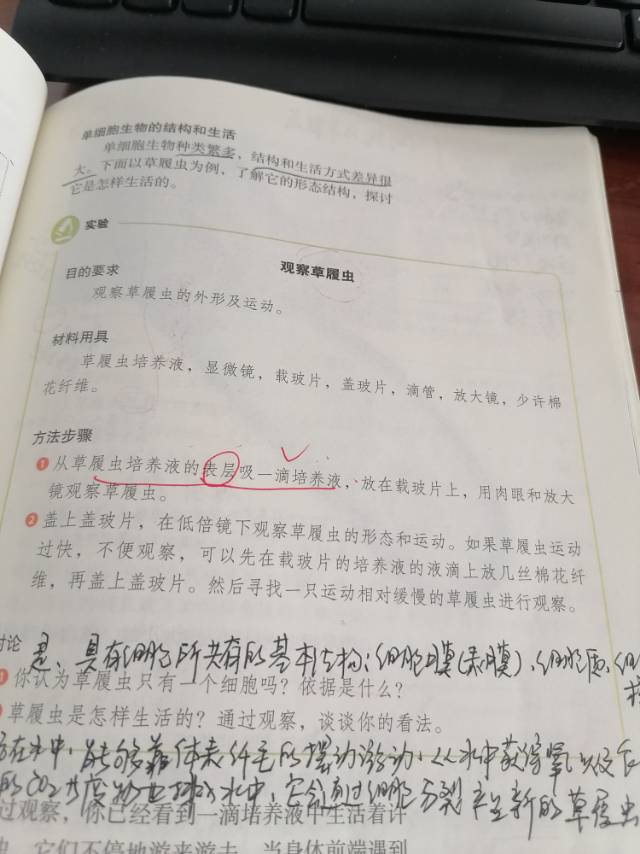 单细胞生物的结构和生活
单细胞生物种类繁多，结构和生活方式差异很
大。下面以草履虫为例，了解它的形态结构，探讨
它是怎样生活的。
实验
观察草履虫
目的要求
观察草履虫的外形及运动。
材料用具
草履虫培养液，显微镜，载玻片，盖玻片，滴管，放大镜，少许棉
花纤维。
方法步骤
1 从草履虫培养液的表层吸一滴培养液，放在载玻片上，用肉眼和放大
镜观察草履虫。
2 盖上盖玻片，在低倍镜下观察草履虫的形态和运动。如果草履虫运动
过快，不便观察，可以先在载玻片的培养液的液滴上放几丝棉花纤
维，再盖上盖玻片。然后寻找一只运动相对缓慢的草履虫进行观察。
讨论
是、具有细胞所共有的基本结构：细胞膜(表膜)、细胞质、细
1 你认为草履虫只有一个细胞吗？依据是什么？
草履虫是怎样生活的？通过观察，谈谈你的看法。
在水中，能够靠体表纤毛的摆动游动，从水中获得氧以及食
的CO2 排 水中，它会通过细胞分裂产生新的草履虫
过观察，你已经看到一滴培养液中生活着许
虫，它们不停地游来游去，当身体前端遇到